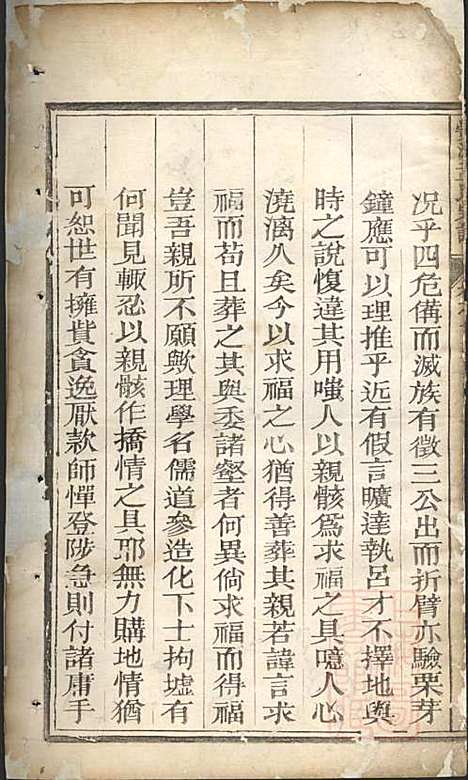 况乎四危備而滅族有徵三公出而折臂亦驗栗芽
鐘應可以理推乎近有假言曠達執呂才不擇地與
時之說愎違其用嗤人以親骸為求福之具噫人心
澆漓久矣今以求福之心猶得善葬其親若諱言求
福而苟且葬之其與委諸壑者何異倘求福而得福
豈吾親所不願歟理學名儒道參造化下士拘墟有
何聞見輙忍以親骸作撟情之具耶無力購地情猶
可恕世有擁貲貪逸厭款師憚登陟急則付諸庸手